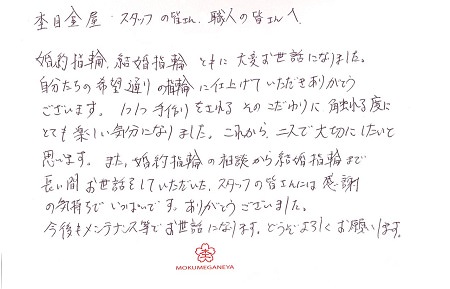 杢目金屋 スタッフの皆さん、職人の皆さんへ
婚約指輪、結婚指輪 ともに大変お世話になりました。
自分たちの希望通りの指輪に仕上げていただきありがとう
ございます。1つ1つ手作りをされる そのこだわりに触れる度に
とても楽しい気分になりました。これから、二人で大切にしたいと
思います。また、婚約指輪の相談から結婚指輪まで
長い間お世話をしていただいた、スタッフの皆さんには感謝
の気持ちでいっぱいです。ありがとうございました。
今後もメンテナンス等でお世話になります。どうぞよろしくお願いします。
MOKUMEGANEYA